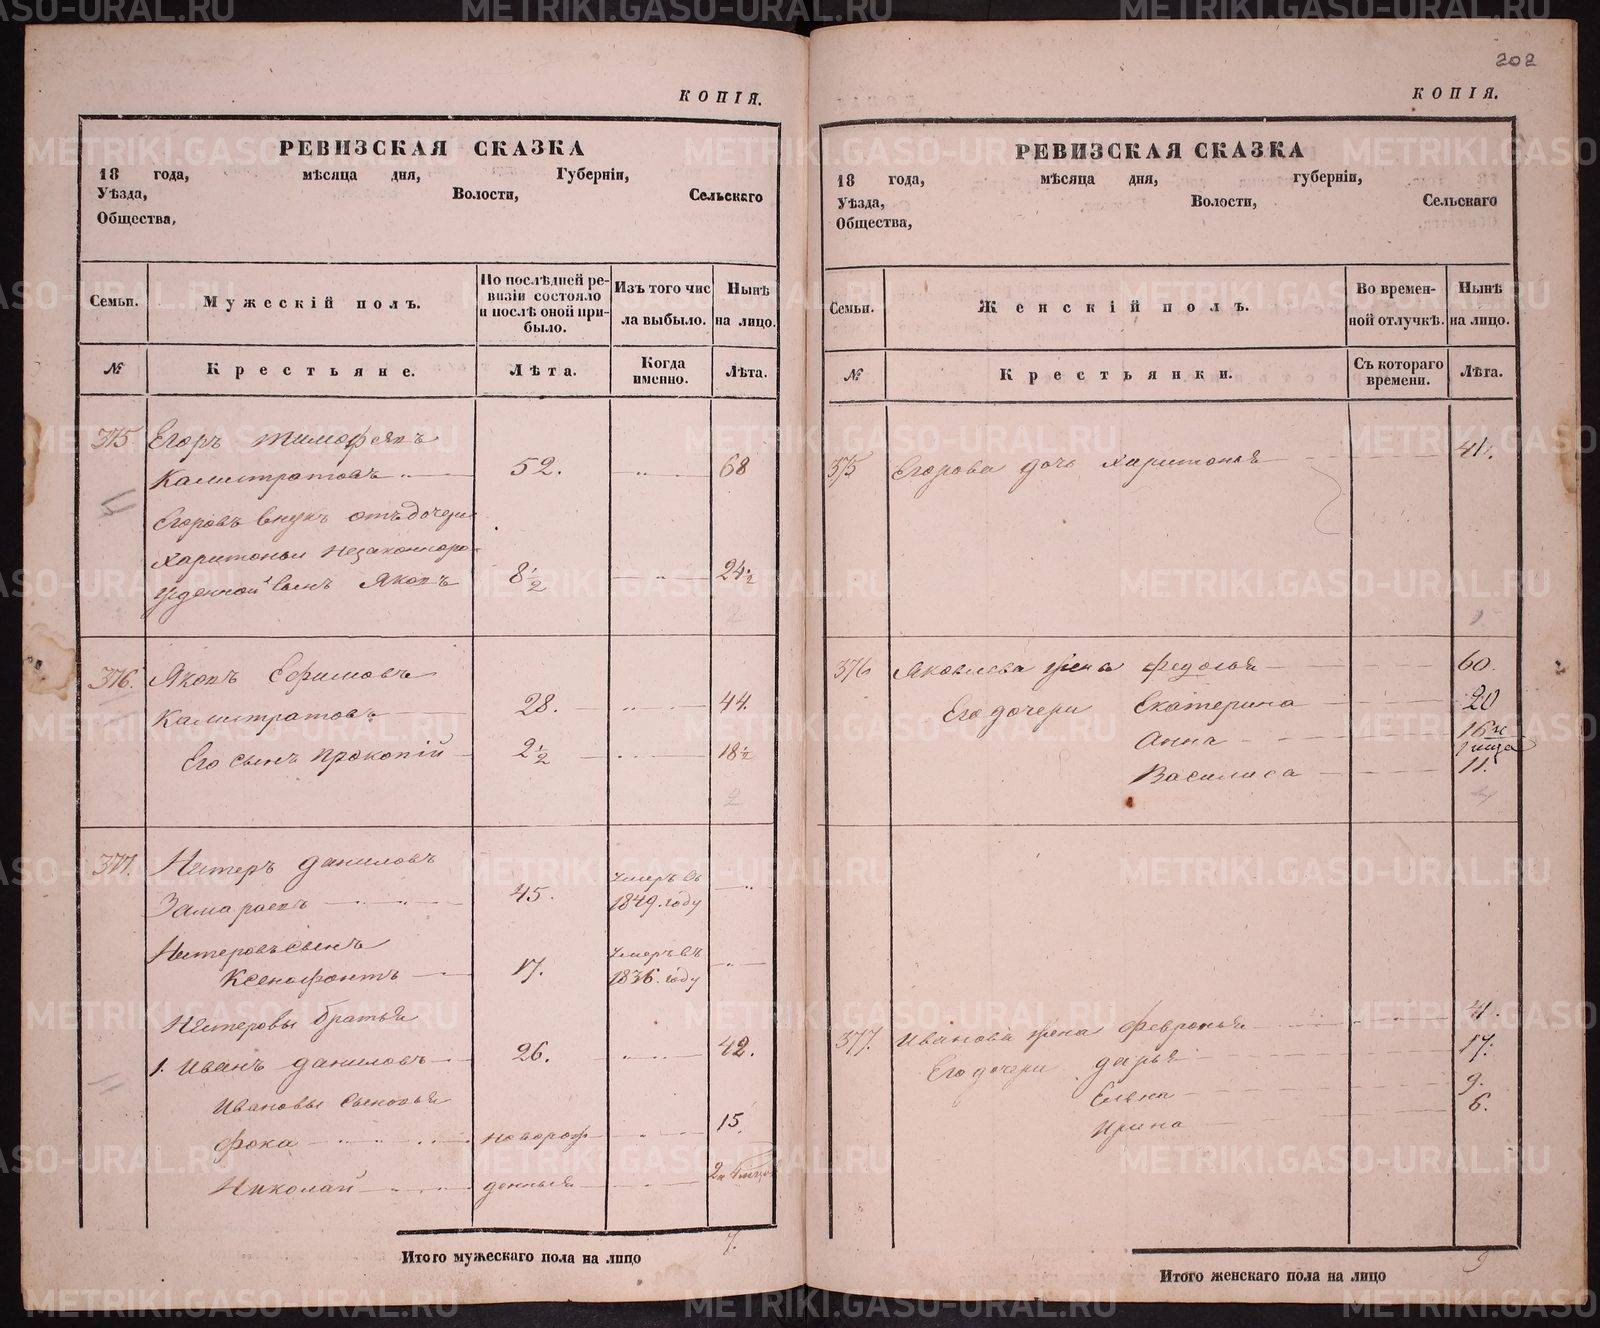 КОПІЯ.
РЕВИЗСКАЯ СКАЗКА
18 года, мѣсяца дня, Губерніи,
Уѣзда, Волости, Сельскаго
Общества,
Семьи. Мужескій полъ. По послѣдней ревизіи состояло и послѣ оной прибыло. Изъ того числа выбыло. Нынѣ на лицо.
№ Крестьяне. Лѣта. Когда именно. Лѣта.
375. Егоръ Тимофѣевъ
Калистратовъ 52. 68
Егоровъ внукъ отъ дочери
Харитоньи незаконноро-
жденной сынъ Яковъ 8½ 24½
2
376. Яковъ Ефимовъ
Калистратовъ 28. 44.
Его сынъ Прокопій 2½ 18½
2
377. Нестеръ Даниловъ
Замараевъ 45. умеръ въ 1849. году
Нестеровъ сынъ
Ксенофонтъ 17. умеръ въ 1836. году
Нестеровы братья
1. Иванъ Даниловъ 26. 42.
Ивановы сыновья
Фока новорож- 15.
Николай денныя
Итого мужескаго пола на лицо 7.
202
КОПІЯ.
РЕВИЗСКАЯ СКАЗКА
18 года, мѣсяца дня, губерніи,
Уѣзда, Волости, Сельскаго
Общества,
Семьи. Женскій полъ. Во временной отлучкѣ. Нынѣ на лицо.
№ Крестьянки. Съ котораго времени. Лѣта.
375 Егорова дочь Харитонья 41.
376 Яковлева жена Федосья 60.
Его дочери Екатерина 20
Анна 16 и
Василиса 11.
377. Иванова жена Февронья 41.
Его дочери Дарья 17.
Елена 9.
Ирина 6.
Итого женскаго пола на лицо 9
METRIKI.GASO-URAL.RU